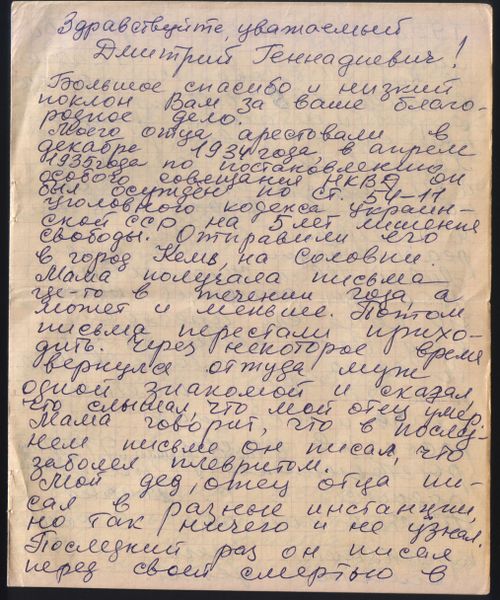 Здравствуйте, уважаемый
Дмитрий Геннадиевич!
Большое спасибо и низкий
поклон Вам за ваше благо-
родное дело.
Моего отца арестовали в
декабре 1934 года, в апреле
1935 года по постановлению
особого совещания НКВД он
был осужден по ст. 54-11
уголовного кодекса Украин-
ской ССР на 5 лет лишения
свободы. Отправили его
в город Кемь, на Соловки.
Мама получала письма
где-то в течении года, а
может и меньше. Потом
письма перестали прихо-
дить. Через некоторое время
вернулся оттуда муж
одной знакомой и сказал,
что слышал, что мой отец умер.
Мама говорит, что в послед-
нем письме он писал, что
заболел плевритом.
Мой дед, отец отца пи-
сал в разные инстанции,
но так ничего и не узнал.
Последний раз он писал
перед своей смертью в